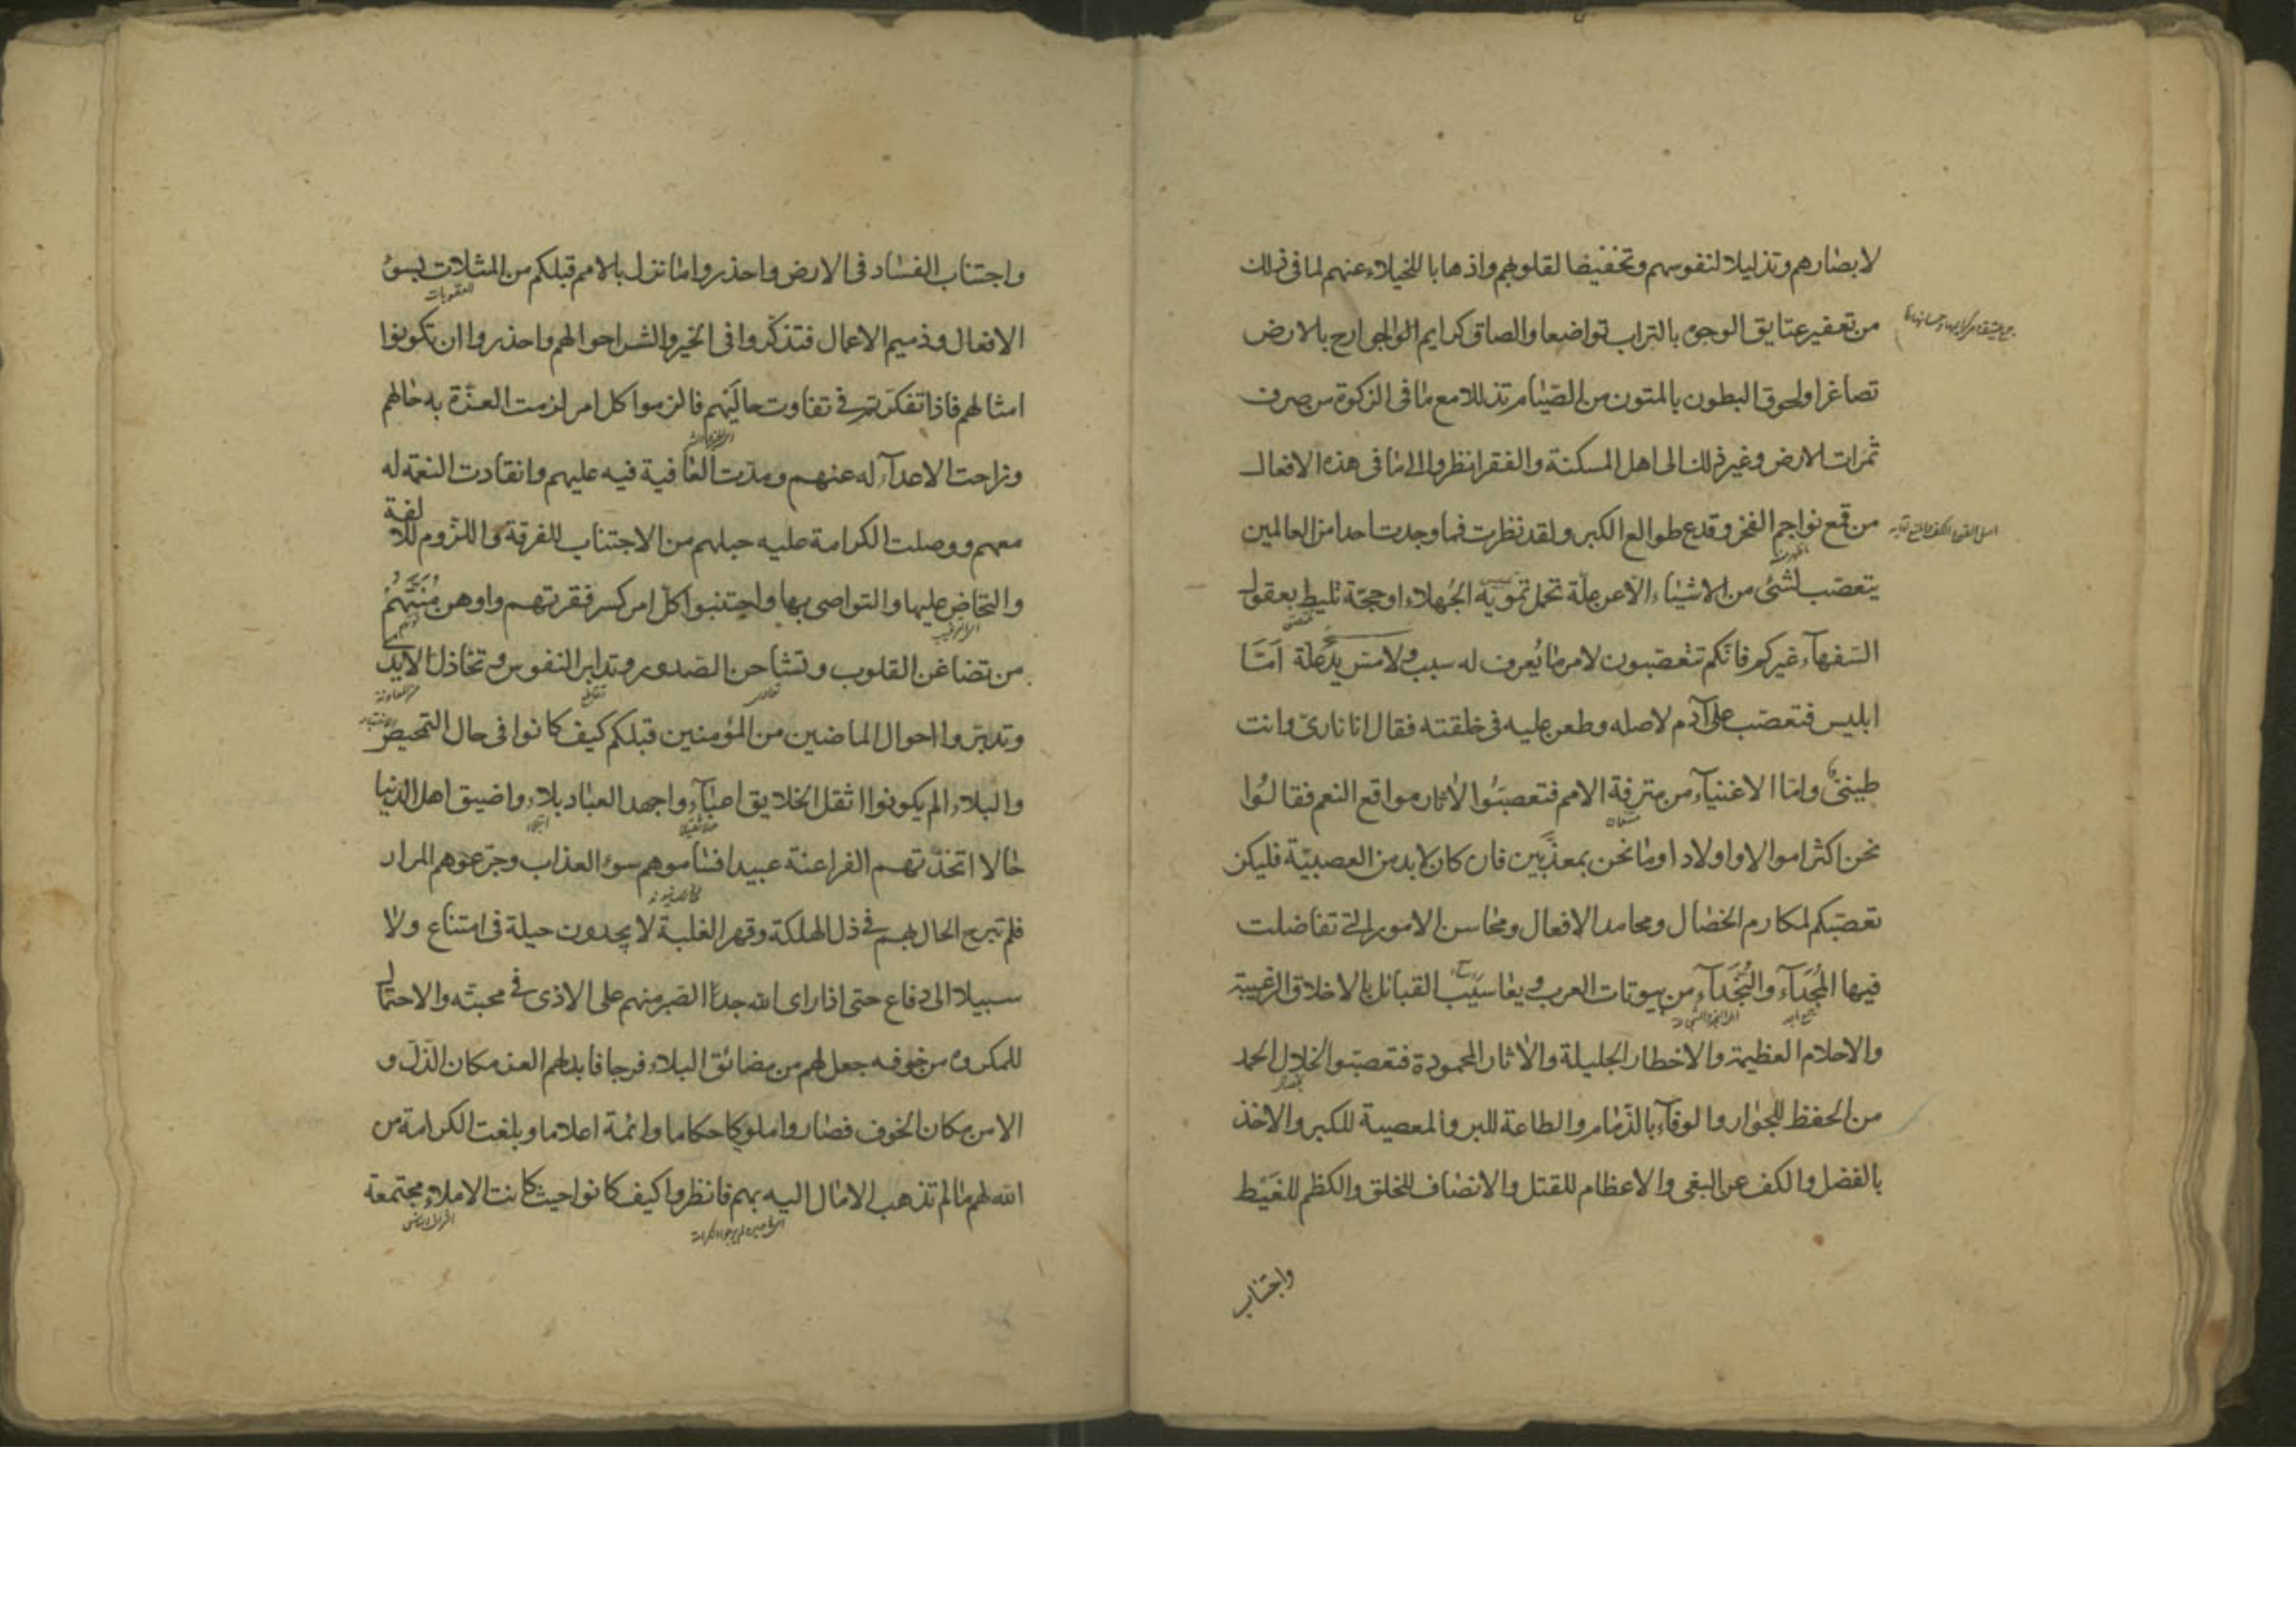 لابصارهم وتذليلا لنفوسهم وتخفيضا لقلوبهم واذهابا للخيلاء عنهم لما في ذلك
من تعفير عتايق الوجوه بالتراب تواضعا والصاق كرايم الجوارح بالارض
تصاغرا ولحوق البطون بالمتون من الصيام تذللا مع ما في الزكوة من صرف
ثمرات الارض وغير ذلك الى اهل المسكنة والفقر انظروا الى ما في هذه الافعال
من قمع نواجم الفخر وقدع طوالع الكبر ولقد نظرت فما وجدت احدا من العالمين
يتعصب لشئ من الاشياء الا عن علة تحمل تمويه الجهلاء او حجة تليط بعقول
السفهآء غيركم فانكم تتعصبون لامر ما يُعرف له سبب ولا مس يد علة امّا
ابليس فتعصب على آدم لاصله وطعن عليه في خلقته فقال انا ناري وانت
طيني واما الاغنيآء من مترفة الامم فتعصبوا لاثار مواقع النعم فقالوا
نحن اكثر اموالا واولادا وما نحن بمعذبين فان كان لا بد من العصبية فليكن
تعصبكم لمكارم الخصال ومحامد الافعال ومحاسن الامور التي تفاضلت
فيها المُجَدَآء والنُجَدَآء من بيوتات العرب ويعاسيب القبائل بالاخلاق الرغيبة
والاحلام العظيمة والاخطار الجليلة والاثار المحمودة فتعصبوا لخلال الحمد
من الحفظ للجوار والوفآء بالذمام والطاعة للبر والمعصية للكبر والاخذ
بالفضل والكف عن البغي والاعظام للقتل والانصاف للخلق والكظم للغيظ
واجتناب
واجتناب الفساد في الارض واحذروا ما نزل بالامم قبلكم من المثلات بسوء
العقوبات
الافعال وذميم الاعمال فتذكّروا في الخير والشر احوالهم واحذروا ان تكونوا
امثالهم فاذا تفكرتم في تفاوت حاليهم فالزموا كل امر لزمت العزّة به حالهم
وزاحت الاعدآء له عنهم ومدت العافية فيه عليهم وانقادت النعمة له
معهم ووصلت الكرامة عليه حبلهم من الاجتناب للفرقة واللزوم للالفة
والتحاض عليها والتواصي بها واجتنبوا كل امر كسر فقرتهم واوهن مُنَّتَهُمْ
من تضاغن القلوب وتشاحن الصدور وتدابر النفوس وتخاذل الايدي
وتدبروا احوال الماضين من المؤمنين قبلكم كيف كانوا في حال التمحيص
والبلاء الم يكونوا اثقل الخلايق اعبآء واجهد العباد بلاء واضيق اهل الدنيا
حالا اتخذتهم الفراعنة عبيدا فساموهم سوء العذاب وجرعوهم المرار
فلم تبرح الحال بهم في ذل الهلكة وقهر الغلبة لا يجدون حيلة في امتناع ولا
سبيلا الى دفاع حتى اذا راى الله جدّ الصبر منهم على الاذى في محبته والاحتمال
للمكروه من خوفه جعل لهم من مضائق البلاء فرجا فابدلهم العز مكان الذل و
الامن مكان الخوف فصاروا ملوكا حكاما وائمة اعلاما وبلغت الكرامة من
الله لهم ما لم تذهب الامال اليه بهم فانظروا كيف كانوا حيث كانت الاملاء مجتمعة